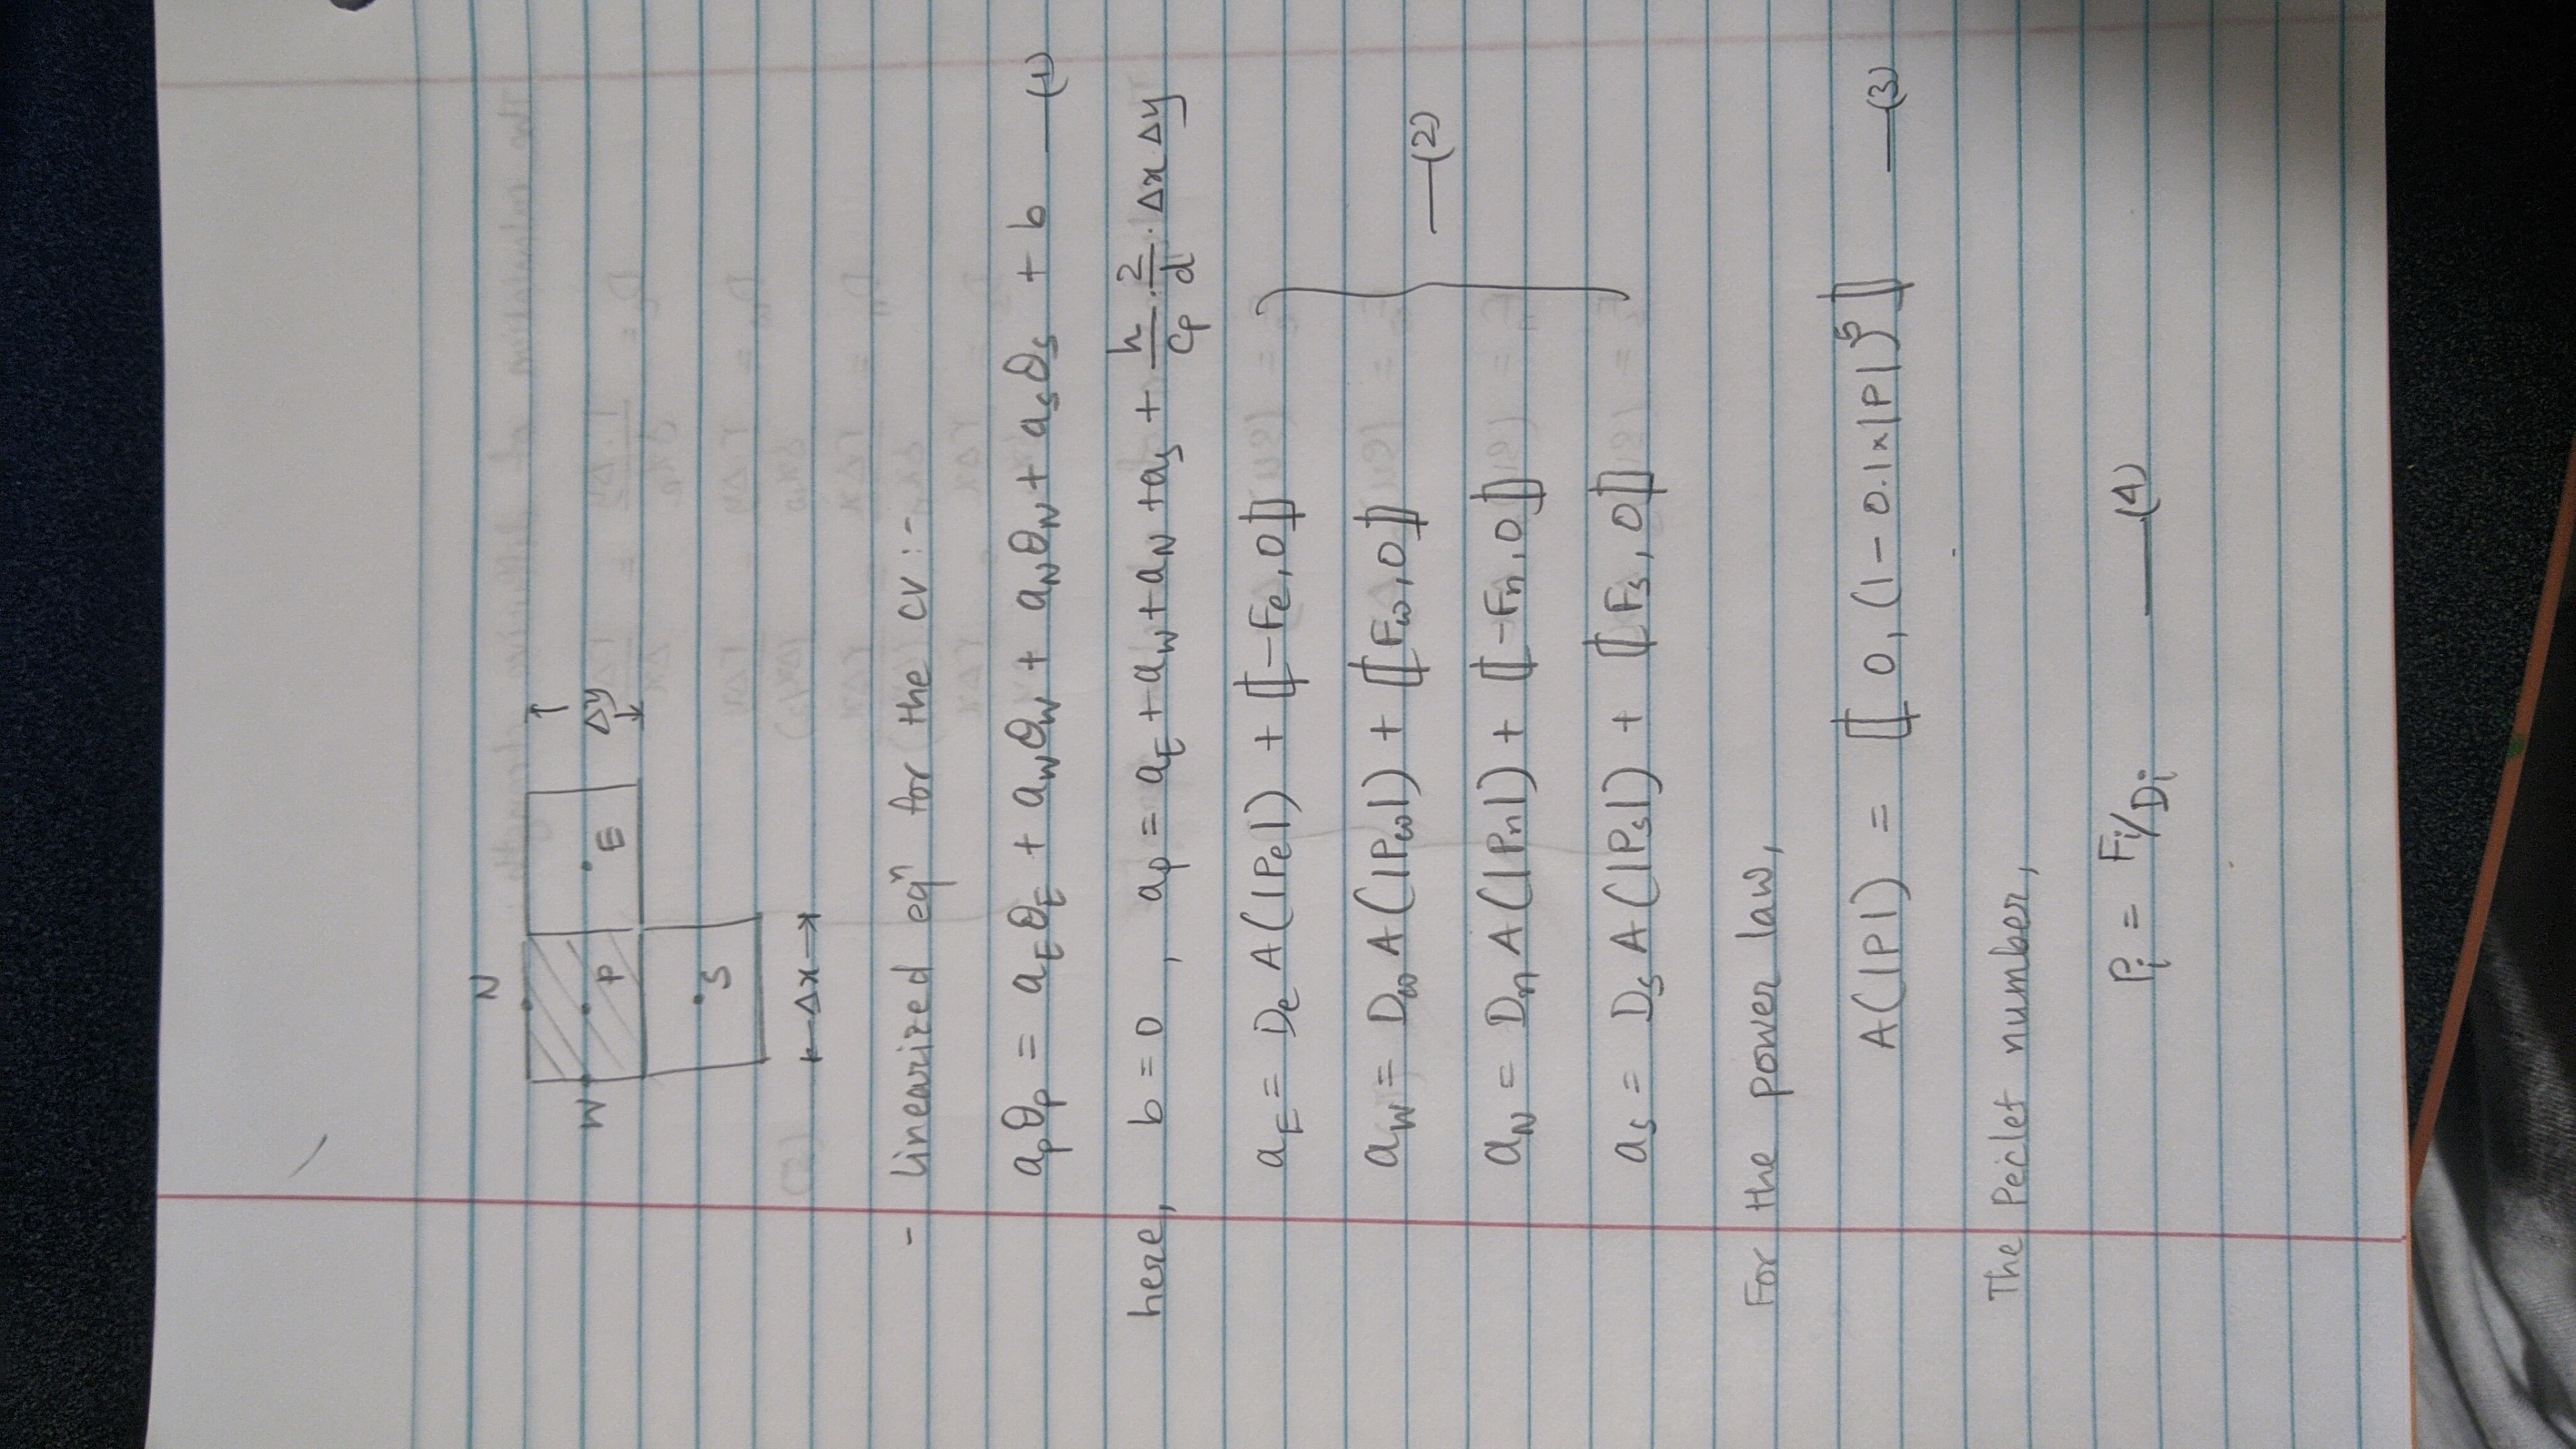 N
W P E Δy
S
Δx
- linearized eqⁿ for the CV :-
a_P θ_P = a_E θ_E + a_W θ_W + a_N θ_N + a_S θ_S + b —(1)
here, b = 0 , a_P = a_E + a_W + a_N + a_S + h/Cp · 2/d · Δx Δy
a_E = D_e A(|P_e|) + ⟦-F_e, 0⟧
a_W = D_w A(|P_w|) + ⟦F_w, 0⟧
—(2)
a_N = D_n A(|P_n|) + ⟦-F_n, 0⟧
a_S = D_s A(|P_s|) + ⟦F_s, 0⟧
For the power law,
A(|P|) = ⟦ 0, (1 - 0.1×|P|)⁵ ⟧ —(3)
The Peclet number,
P_i = F_i/D_i —(4)